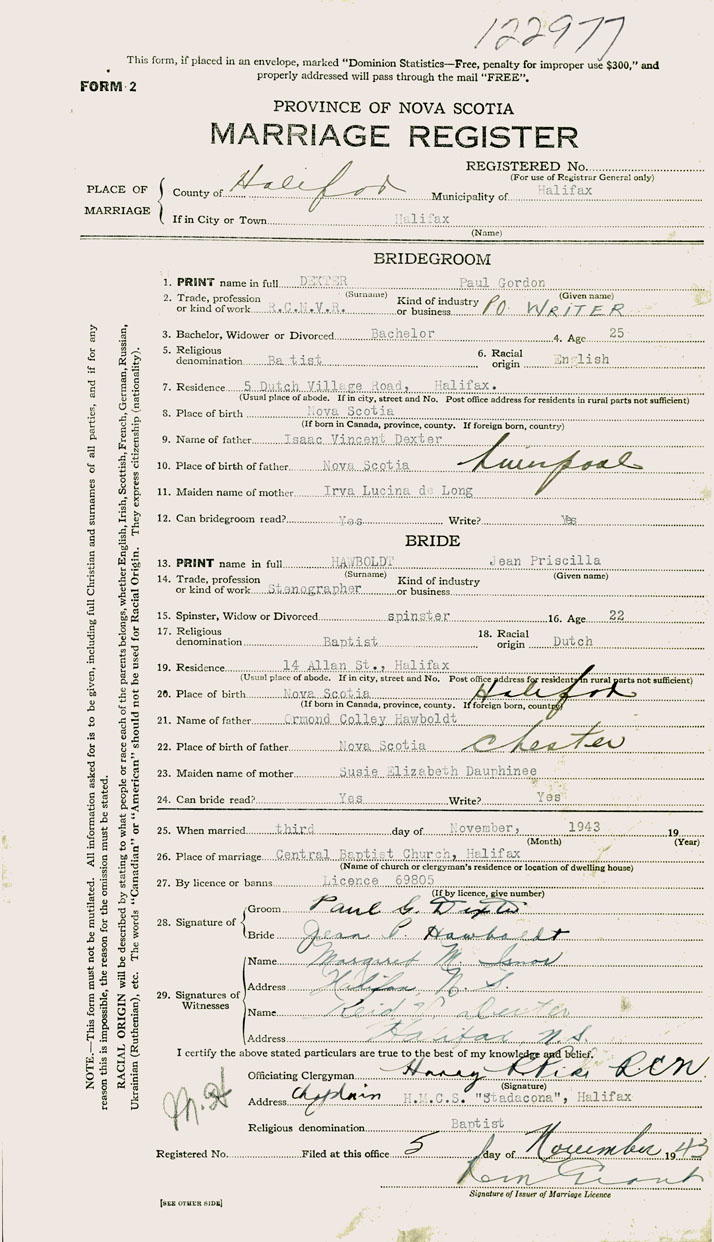 122977
This form, if placed in an envelope, marked "Dominion Statistics—Free, penalty for improper use $300," and
properly addressed will pass through the mail "FREE".
FORM 2
PROVINCE OF NOVA SCOTIA
MARRIAGE REGISTER
REGISTERED No.
(For use of Registrar General only)
PLACE OF MARRIAGE
County of Halifax Municipality of Halifax
If in City or Town Halifax
(Name)
BRIDEGROOM
1. PRINT name in full DEXTER Paul Gordon
(Surname) (Given name)
2. Trade, profession or kind of work R.C.N.V.R. Kind of industry or business PO WRITER
3. Bachelor, Widower or Divorced Bachelor 4. Age 25
5. Religious denomination Ba tist 6. Racial origin English
7. Residence 5 Dutch Village Road, Halifax.
(Usual place of abode. If in city, street and No. Post office address for residents in rural parts not sufficient)
8. Place of birth Nova Scotia
(If born in Canada, province, county. If foreign born, country)
9. Name of father Isaac Vincent Dexter
10. Place of birth of father Nova Scotia Liverpool
11. Maiden name of mother Irva Lucina de Long
12. Can bridegroom read? Yes Write? Yes
BRIDE
13. PRINT name in full HAWBOLDT Jean Priscilla
(Surname) (Given name)
14. Trade, profession or kind of work Stenographer Kind of industry or business
15. Spinster, Widow or Divorced spinster 16. Age 22
17. Religious denomination Baptist 18. Racial origin Dutch
19. Residence 14 Allan St., Halifax
(Usual place of abode. If in city, street and No. Post office address for residents in rural parts not sufficient)
20. Place of birth Nova Scotia Halifax
(If born in Canada, province, county. If foreign born, country)
21. Name of father Ormond Colley Hawboldt
22. Place of birth of father Nova Scotia Chester
23. Maiden name of mother Susie Elizabeth Dauphinee
24. Can bride read? Yes Write? Yes
25. When married third day of November, 1943 19
(Month) (Year)
26. Place of marriage Central Baptist Church, Halifax
(Name of church or clergyman's residence or location of dwelling house)
27. By licence or banns Licence 69805
(If by licence, give number)
28. Signature of
Groom Paul G. Dexter
Bride Jean P. Hawboldt
29. Signatures of Witnesses
Name Margaret M.
Address Halifax N. S.
Name Reid
Address Halifax N.S.
I certify the above stated particulars are true to the best of my knowledge and belief.
Officiating Clergyman Harry RCN
(Signature)
Address Chaplain H.M.C.S. "Stadacona", Halifax
Religious denomination Baptist
Registered No. Filed at this office 5 day of November 1943
Signature of Issuer of Marriage Licence
[SEE OTHER SIDE]
NOTE.—This form must not be mutilated. All information asked for is to be given, including full Christian and surnames of all parties, and if for any
reason this is impossible, the reason for the omission must be stated.
RACIAL ORIGIN will be described by stating to what people or race each of the parents belongs, whether English, Irish, Scottish, French, German, Russian,
Ukrainian (Ruthenian), etc. The words "Canadian" or "American" should not be used for Racial Origin. They express citizenship (nationality).